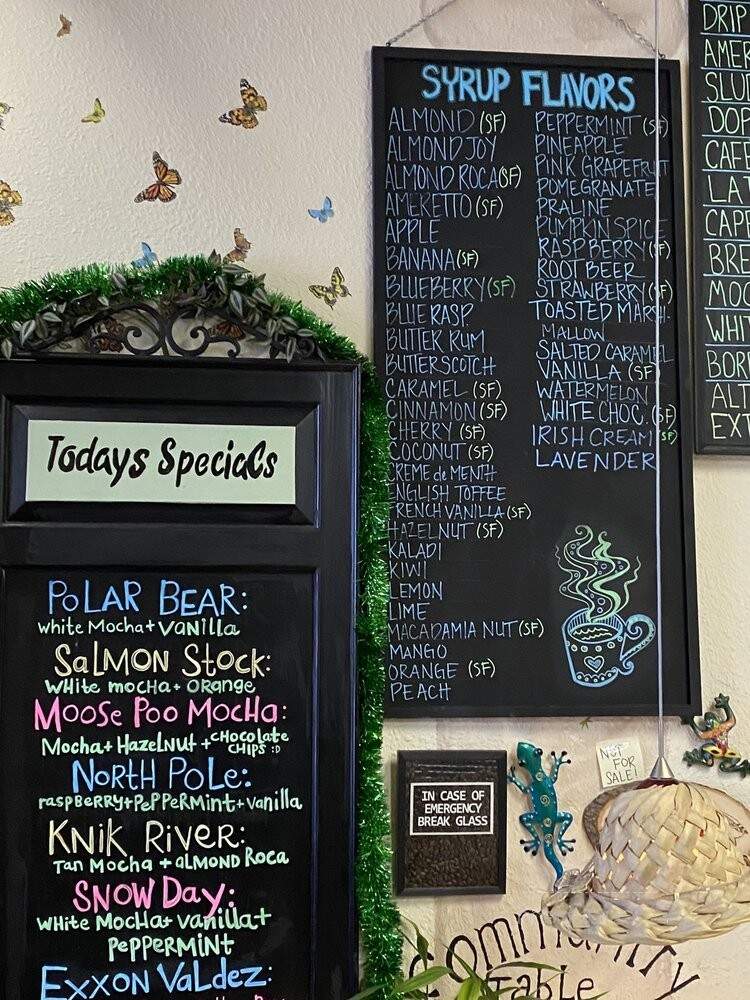 SYRUP FLAVORS
ALMOND (SF)
ALMOND JOY
ALMOND ROCA (SF)
AMERETTO (SF)
APPLE
BANANA (SF)
BLUEBERRY (SF)
BLUE RASP.
BUTTER RUM
BUTTERSCOTCH
CARAMEL (SF)
CINNAMON (SF)
CHERRY (SF)
COCONUT (SF)
CREME de MENTH
ENGLISH TOFFEE
FRENCH VANILLA (SF)
HAZELNUT (SF)
KALADI
KIWI
LEMON
LIME
MACADAMIA NUT (SF)
MANGO
ORANGE (SF)
PEACH
PEPPERMINT (SF)
PINEAPPLE
PINK GRAPEFRUIT
POMEGRANATE
PRALINE
PUMPKIN SPICE
RASPBERRY (SF)
ROOT BEER
STRAWBERRY (SF)
TOASTED MARSH-
MALLOW
SALTED CARAMEL
VANILLA (SF)
WATERMELON
WHITE CHOC. (SF)
IRISH CREAM (SF)
LAVENDER
DRIP
AMER
DOP
CAFF
LAT
CAPP
BRE
MOC
WHI
BOR
ALT
EXT
Todays Specials
POLAR BEAR:
white Mocha + VANILLA
SaLMON STOCK:
WHite mocHa + ORange
MOOSE POO MOCHa:
MOCHa + HaZeLNUT + CHOCOLaTe
CHIPS :D
NORTH POLe:
RaSPBERRY + PePPeRMiNT + Vanilla
KNIK RIVER:
Tan Mocha + aLMOND ROCa
SNOW DAY:
WHITE MOCHa + VaniLLa +
PePPERMINT
EXXON VaLDeZ:
IN CASE OF
EMERGENCY
BREAK GLASS
NOT
FOR
SALE!
Community
Table